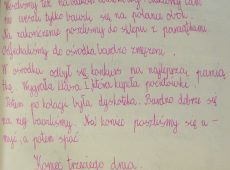 na wesoło tylko bawili się na polanie obok.
Na zakończenie poszliśmy do sklepu z pamiątkami
Odjechaliśmy do ośrodka bardzo zmęczeni.
W ośrodku odbył się konkurs na najlepszą pamią-
tkę. Wygrała klara I która kupiła pocztówki.
Potem po kolacji była dyskoteka. Bardzo dobrze się
na niej bawiliśmy. Na koniec poszliśmy się u-
myć, a potem spać
Koniec trzeciego dnia